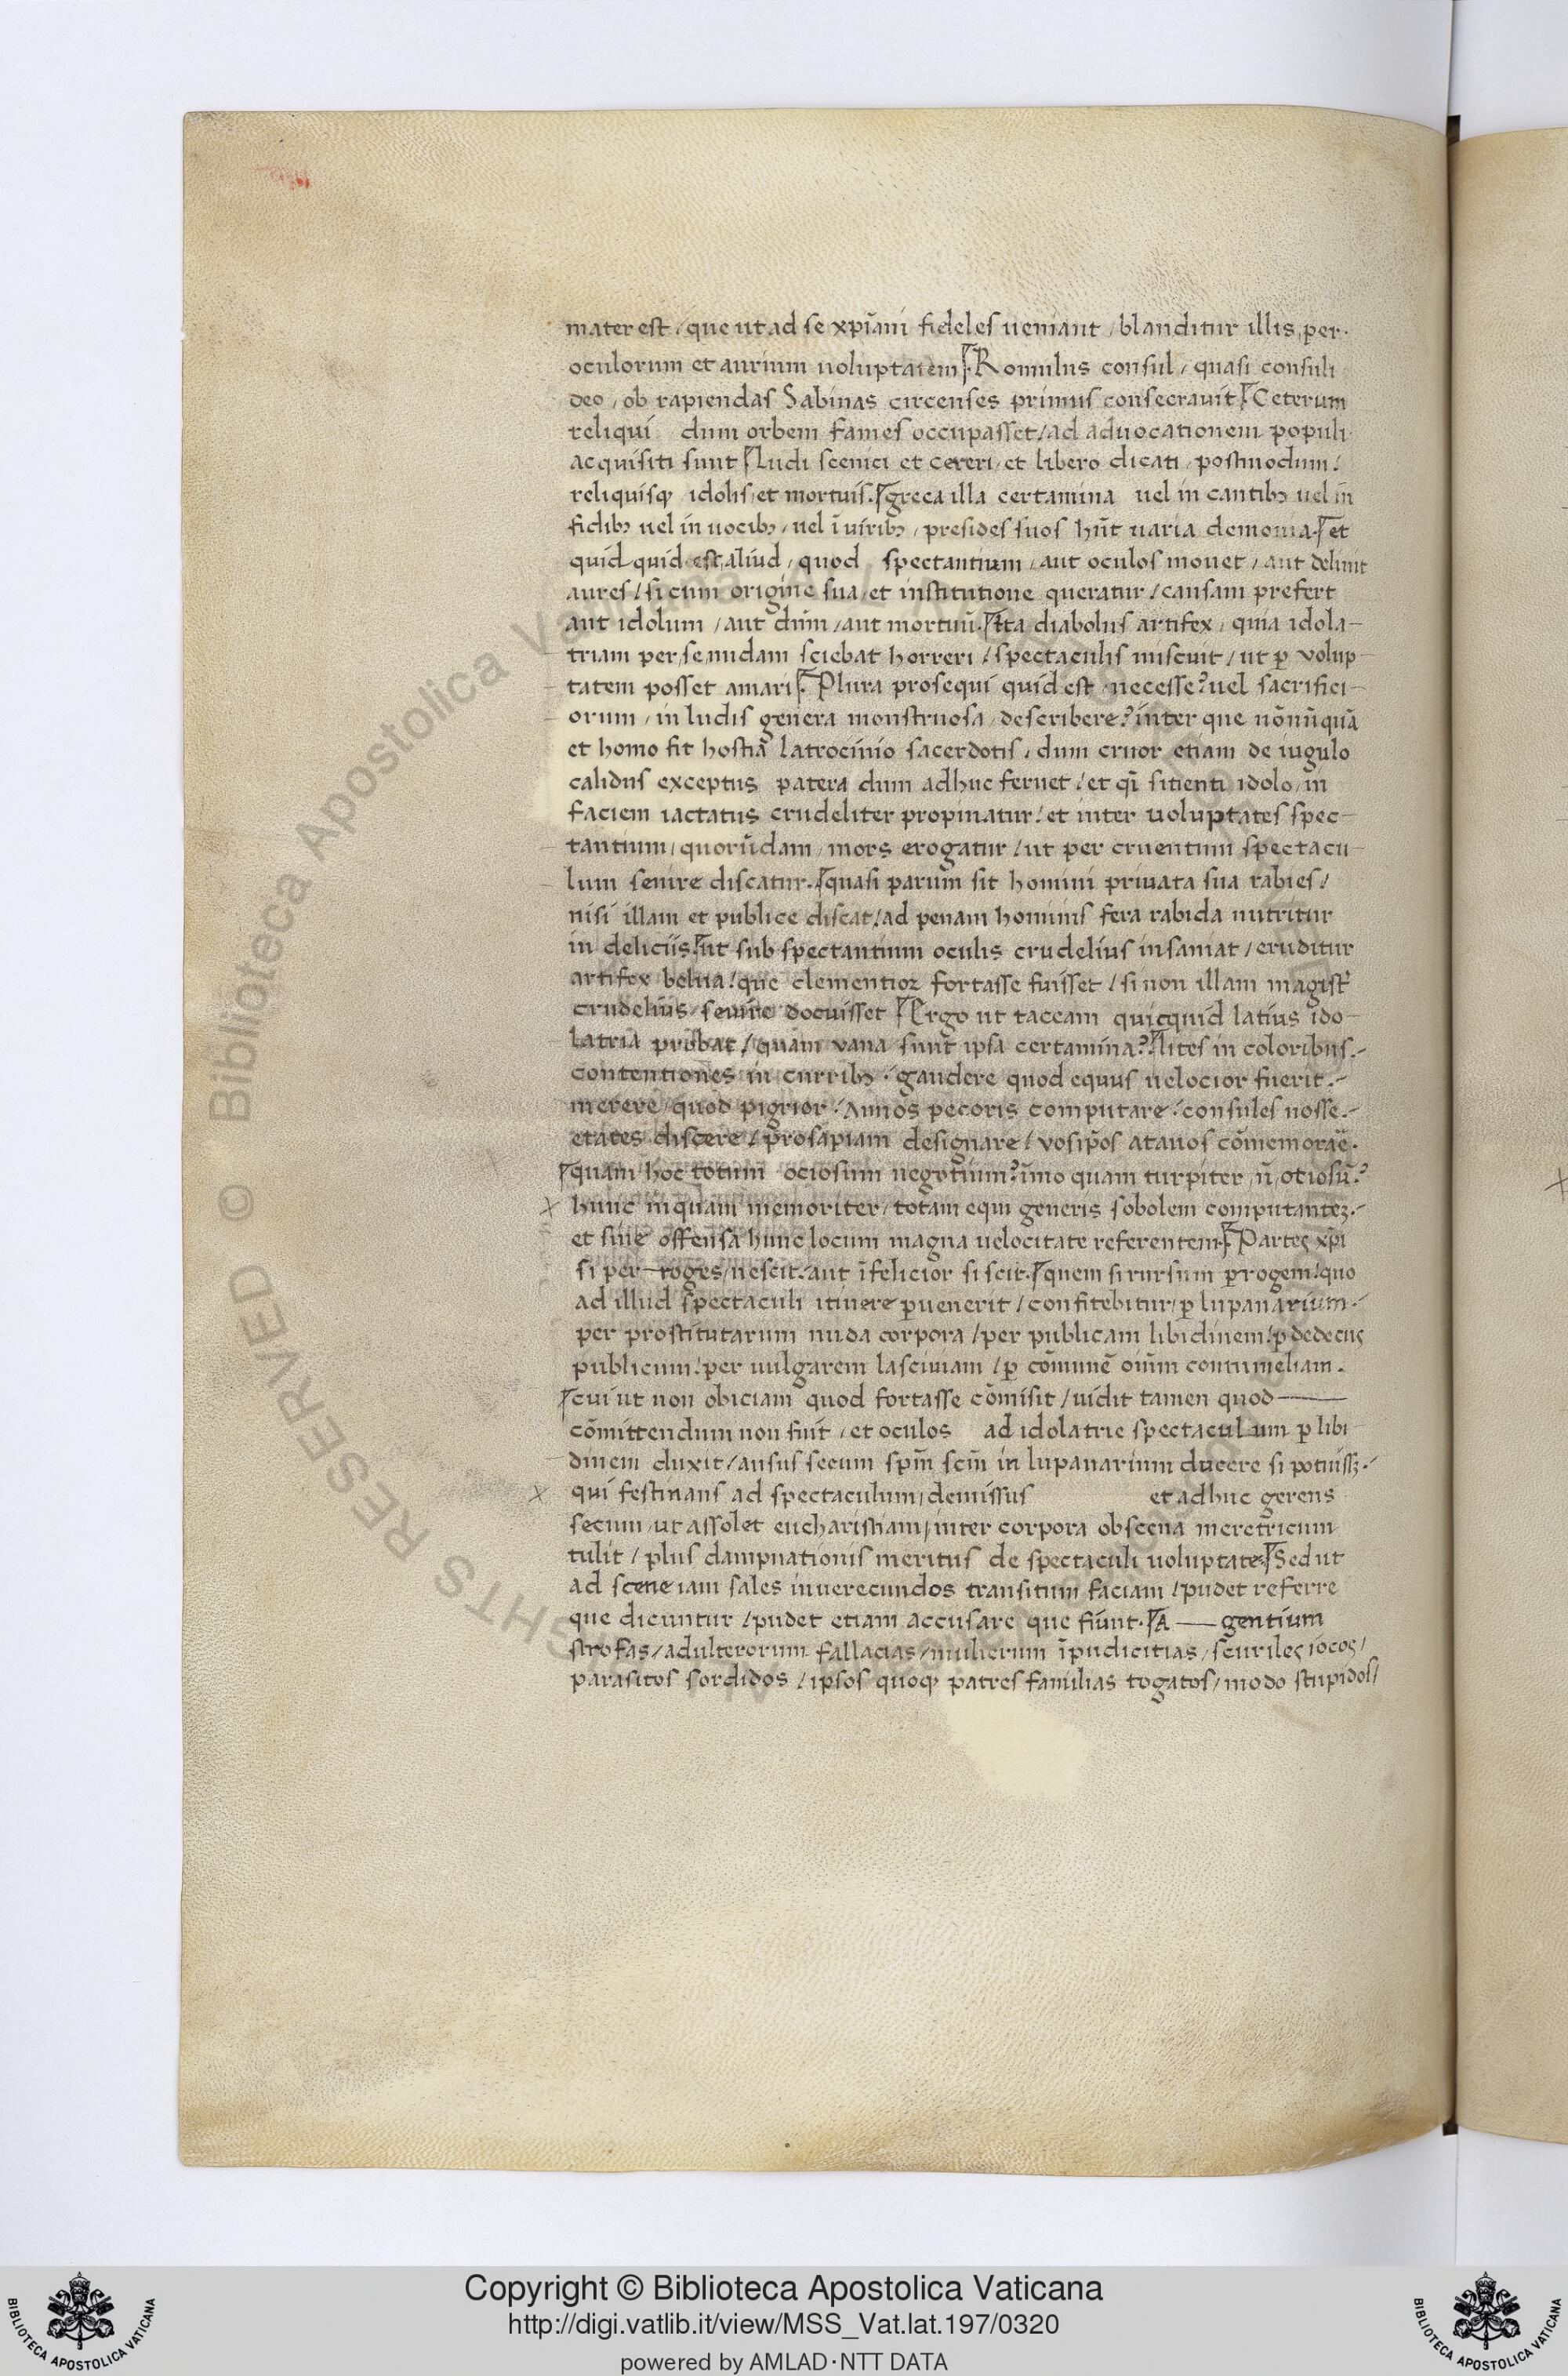 mater est / que ut ad se xp̄iani fideles ueniant / blanditur illis, per.
oculorum et aurium uoluptatem. Romulus consul / quasi consuli
deo / ob rapiendas Sabinas circenses primus consecrauit. Ceterum
reliqui dum orbem fames occupasset / ad aduocationem populi
acquisiti sunt ludi scenici et cereri / et libero dicati / postmodum /
reliquisq; idolis / et mortuis. greca illa certamina uel in cantibꝫ uel in̄
fidibꝫ uel in uocibꝫ / uel ī uiribꝫ / presides suos hn̄t uaria demonia. et
quid quid est aliud / quod spectantium / aut oculos mouet / aut delinit
aures / si cum origine sua / et institutione queratur / causam prefert
aut idolum / aut dūm / aut mortuū. Ita diabolus artifex / quia idola-
triam per se nudam sciebat horreri / spectaculis miscuit / ut ꝑ volup-
tatem posset amari. Plura prosequi quid est / necesse? uel sacrifici-
orum / in ludis genera monstruosa / describere? inter que nōnūquā
et homo fit hostia latrocinio sacerdotis / dum cruor etiam de iugulo
calidus exceptus patera dum adhuc feruet / et q̄i sitienti idolo / in
faciem iactatus crudeliter propinatur / et inter uoluptates spec-
tantium / quorūdam / mors erogatur / ut per cruentum spectacu-
lum seuire discatur. quasi parum sit homini priuata sua rabies /
nisi illam et publice discat / ad penam hominis fera rabida nutritur
in deliciis. ut sub spectantium oculis crudelius insaniat / eruditur
artifex belua / que clementior fortasse fuisset / si non illam magist̄
crudelius / seuire docuisset Ergo ut taceam quicquid latius ido-
latria probat / quam vana sunt ipsa certamina? lites in coloribus.-
contentiones in curribꝫ / gaudere quod equus uelocior fuerit.-
merere / quod pigrior / Annos pecoris computare / consules nosse.-
etates discere / prosapiam designare / vosip̄os atauos cōmemorare.
quam hoc totum ociosum negotium? īmo quam turpiter, n̄, otiosū?
hunc inquam memoriter / totam equi generis sobolem computantez.-
et sine offensa hunc locum magna uelocitate referentem. Partes xp̄i
si per-roges / nescit / aut īfelicior si scit. quem si rursum ꝑrogem / quo
ad illud spectaculi itinere ꝑuenerit / confitebitur / ꝑ lupanarium.-
per prostitutarum nuda corpora / per publicam libidinem / ꝑ dedecus
publicum / per uulgarem lasciuiam / ꝑ cōmunē oīum contumeliam.
cui ut non obiciam quod fortasse cōmisit / uidit tamen quod
cōmittendum non fuit / et oculos ad idolatrie spectaculum ꝑ libi-
dinem duxit / ausus secum spm̄ scm̄ in lupanarium ducere si potuiss;.-
qui festinans ad spectaculum / demissus et adhuc gerens
secum / ut assolet eucharistiam / inter corpora obscena meretricum
tulit / plus dampnationis meritus de spectaculi uoluptate. Sed ut
ad scene iam sales inuerecundos transitum faciam / pudet referre
que dicuntur / pudet etiam accusare que fiunt. A — gentium
strofas / adulterorum fallacias / mulierum īpudicitias / scuriles iocos /
parasitos sordidos / ipsos quoq; patres familias togatos / modo stupidos /
Copyright © Biblioteca Apostolica Vaticana
http://digi.vatlib.it/view/MSS_Vat.lat.197/0320
powered by AMLAD·NTT DATA
BIBLIOTECA APOSTOLICA VATICANA
BIBLIOTECA APOSTOLICA VATICANA